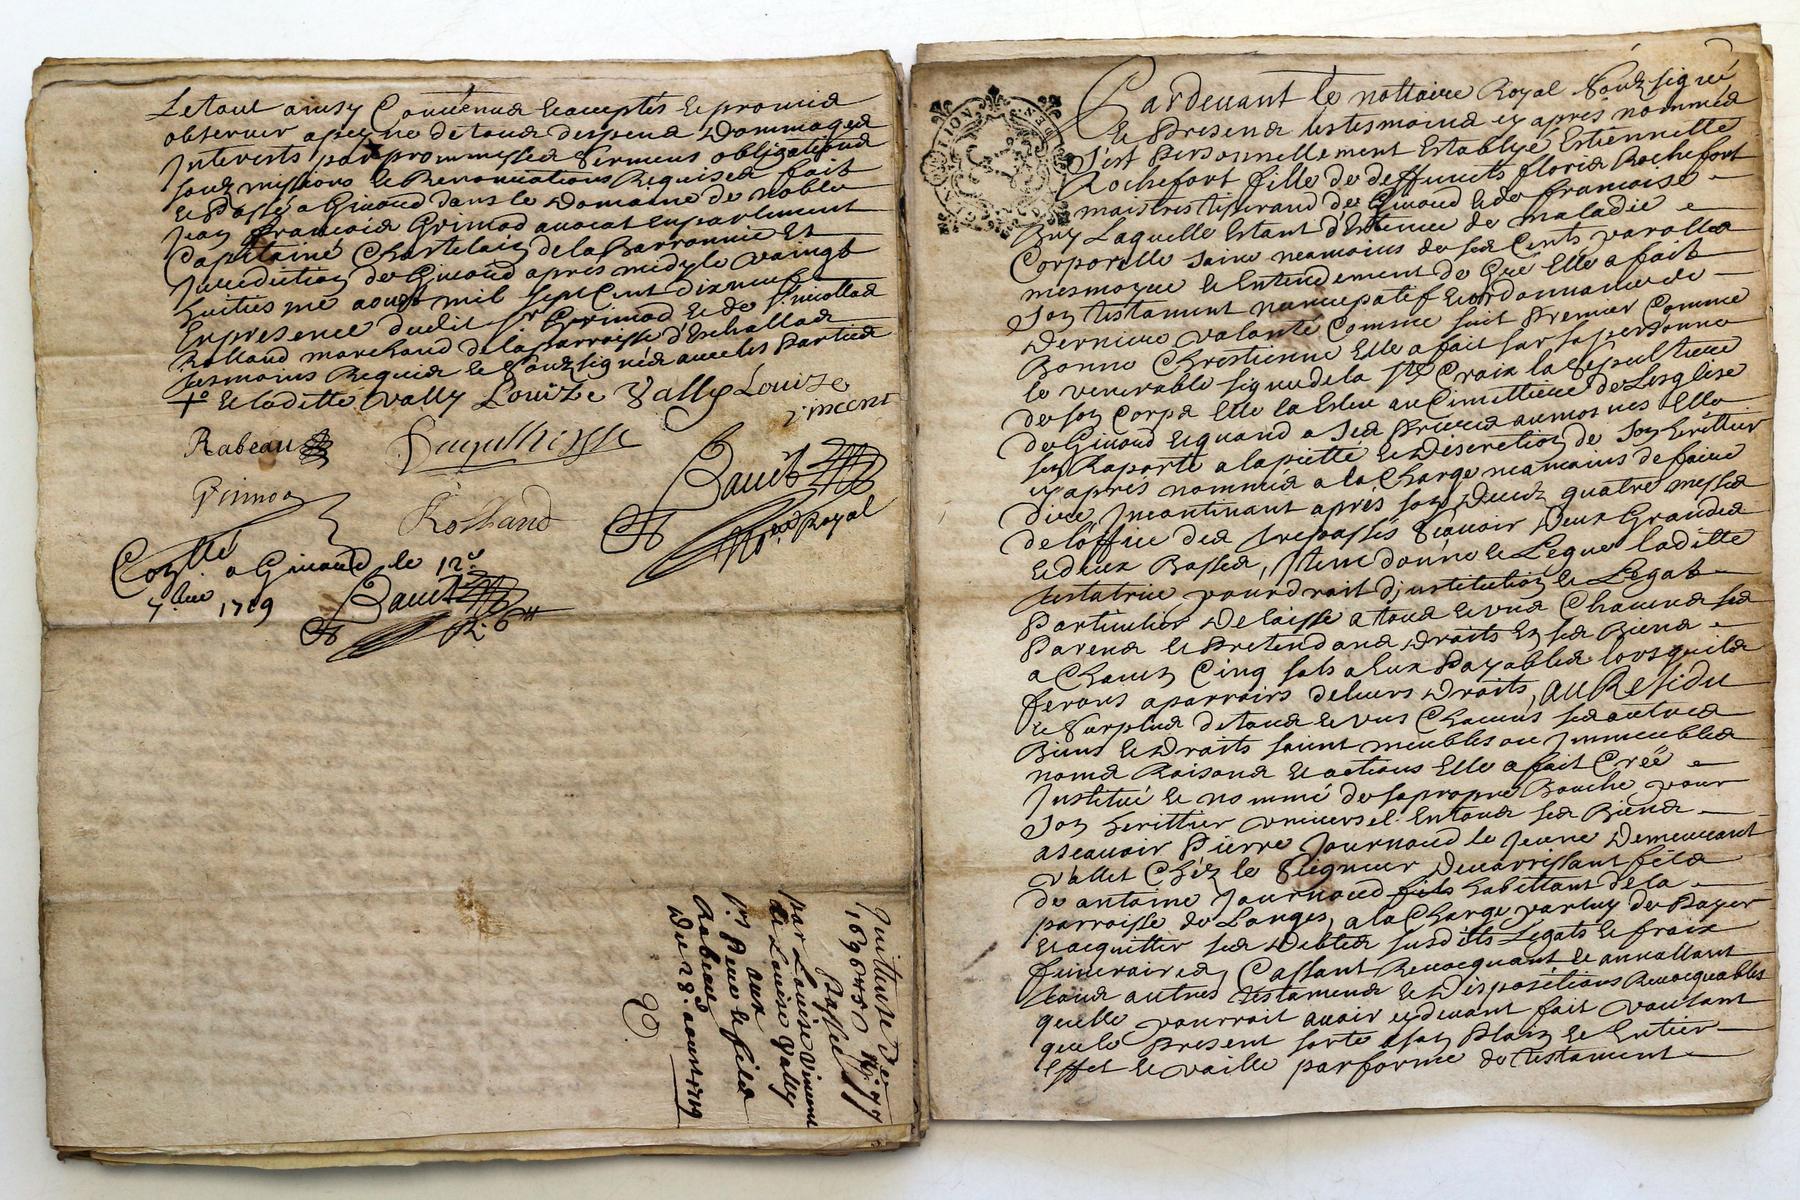 Letout ainsy Convenus Et acceptés Et promis
observer apeyne de tous despens Dommages
Interests par prommesses sermens obligations
soubzmissions Et Renonciations Requises fait
Et Passé a Givord dans le Domaine de noble
Jean françois Grimod avocat enparlement
Capitaine Chastelain delaBarronnie Et
Jurediction de Givord apres midy le vaingt
huities me aoust mil sept Cent dixneuf
En presence dudit sr Grimod Et de Sr nicollas
Rolland marchand de la parroisse d'Eschallas
tesmoins Requis Et soubzsignés avec les Parties
Et laditte Vally Louïze Vally Louize
vincent
Rabeau
Grimod
Rolland
Royal
Con.llé a Givord le 12e
7.bre 1719
R. 6 tt
Quittense de
169 Passé
par Louise vincent
Et Louise Vally
aux
Rabeau
Du 28. aoust 1719
Pardevant le nottaire Royal soubzsigné
Et Presens les tesmoins cy après nommés
S'est Personnellement Establye Estiennette
Rochefort fille de deffuncts floris Rochefort
maistre de Givord Et de francoise
Laquelle Estant détenue de maladie
Corporelle saine neamoins de ses Cents parolle
mesmoyre Et Entendement de Gré Elle a fait
son testament nuncupatif Et ordonnance de
Derniere volanté Comme suit Premier Comme
Bonne Chrestienne Elle a fait sur sa personne
le venerable signe de la Ste Croix la sepulture
de son Corps Elle la Esleu au Cimettiere de Lesglise
de Givord Et quand a ses Prieres aumosnes Elle
sen Raporte a la pietté Et Discretion de son heritier
cy après nommés a la Charge neamoins de faire
dire Incontinant après son Deceds quatre messes
de lóffice des trespassés scavoir Deux Grandes
Et deux Basses, Item donne Et Legue laditte
testatrice pour droit d'institution Et Legat
Particulier Delaisse a tous Et uns Chacuns ses
Parens Et Pretendans Droits En ses Biens
a Chacun Cinq sols a Eux Payables lorsquils
feront aparroir de leurs Droits, au Residu
Et Surplus de tous Et uns Chacuns ses autres
Biens Et Droits soient meubles ou Immeubles
noms Raisons Et actions Elle a fait Créé
Institué Et nommé de sa propre Bouche pour
son heritier universel En tous ses Biens
ascavoir Pierre Journoud le jeune Demeurant
vallet Chéz le Seigneur fils
de antoine Journoud habittant de la
parroisse de Longes, a la Charge par luy de Payer
Et acquitter ses Debtes susdits Legats Et fraix
funeraires, Cassant Revocquant Et annullant
tous autres testamens Et Dispositions Revocquables
quelle pourroit avoir cy devant fait voulant
que le Present sorte a son Plain Et Entier
Effet Et vaille par forme de testament